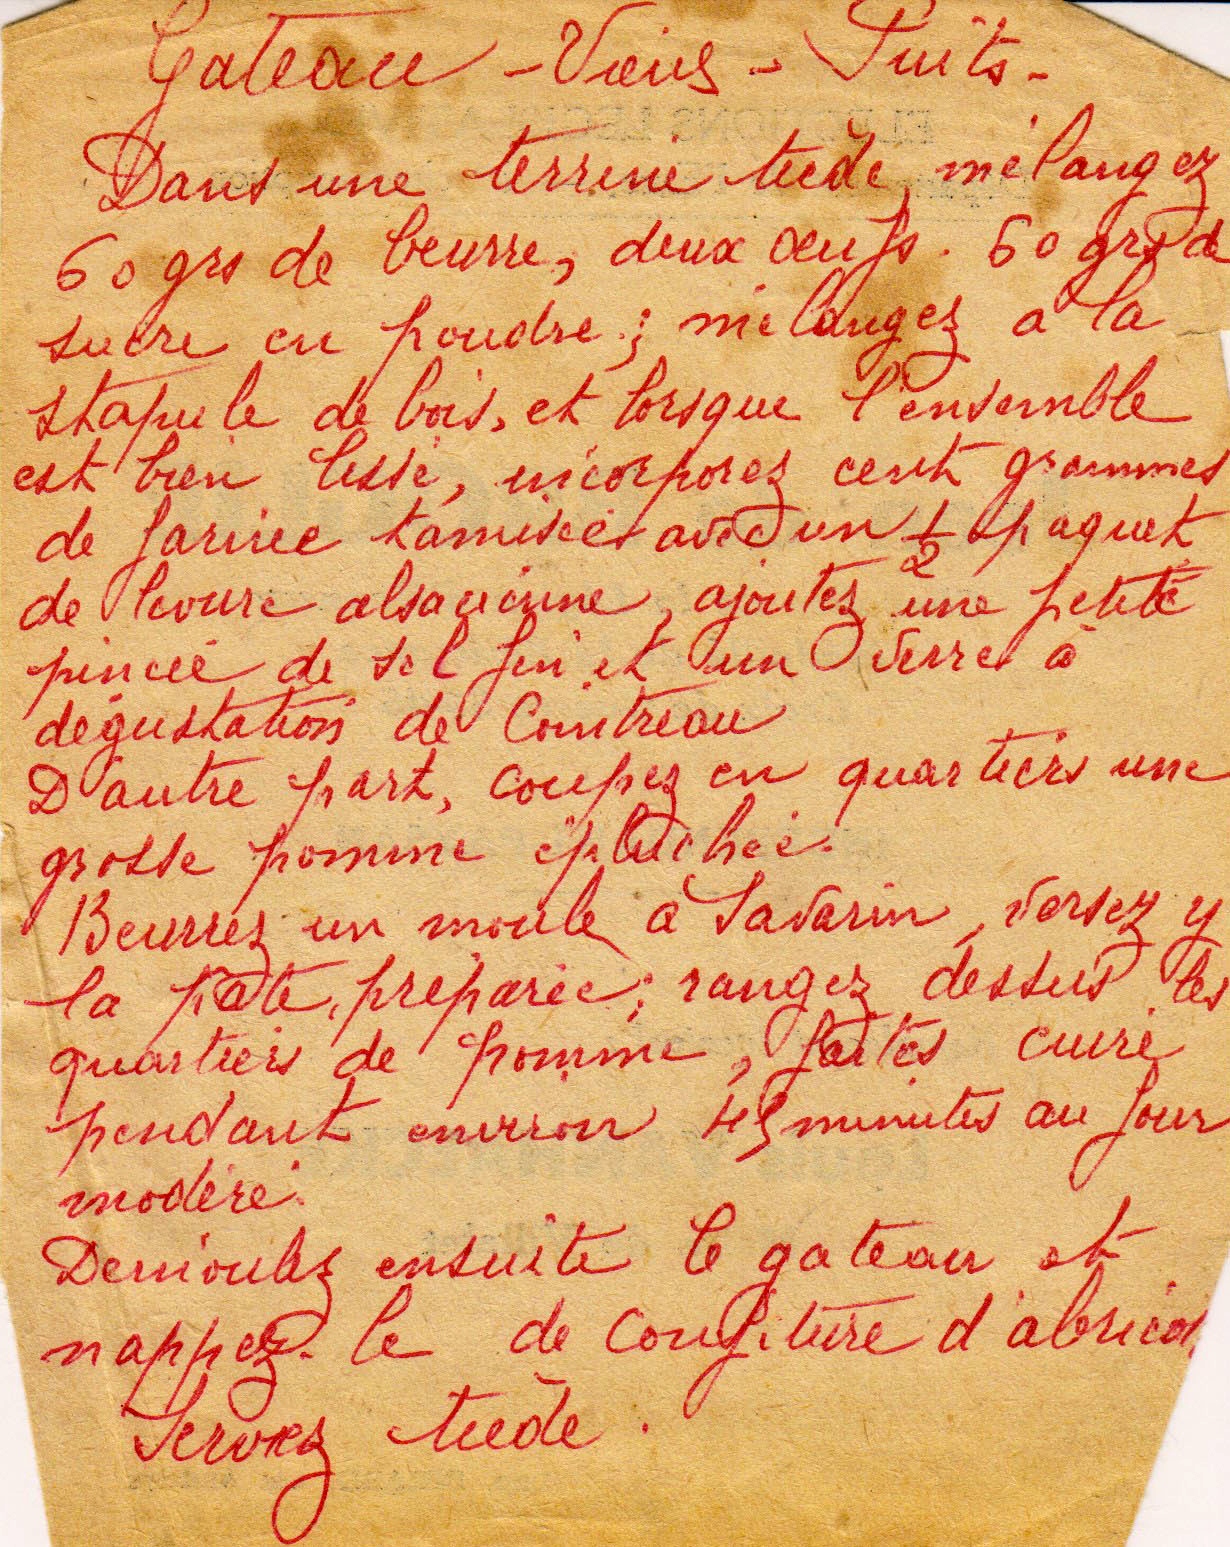 Gateau - Vieux - Puits -
Dans une terrine tiède, mélangez
60 grs de beurre, deux œufs. 60 grs de
sucre en poudre ; mélangez a la
stapule de bois, et lorsque l'ensemble
est bien lissé, incorporez cent grammes
de farine tamisée avec un 1/2 paquet
de levure alsacienne, ajoutez une petite
pincée de sel fin et un verre à
dégustation de Cointreau
D'autre part, coupez en quartiers une
grosse pomme épluchée.
Beurrez un moule à Savarin, versez y
la pâte, préparée ; rangez dessus les
quartiers de pomme, faites cuire
pendant environ 45 minutes au four
modéré.
Demoulez ensuite le gateau et
nappez-le de confiture d'abricot
Servez tiède.